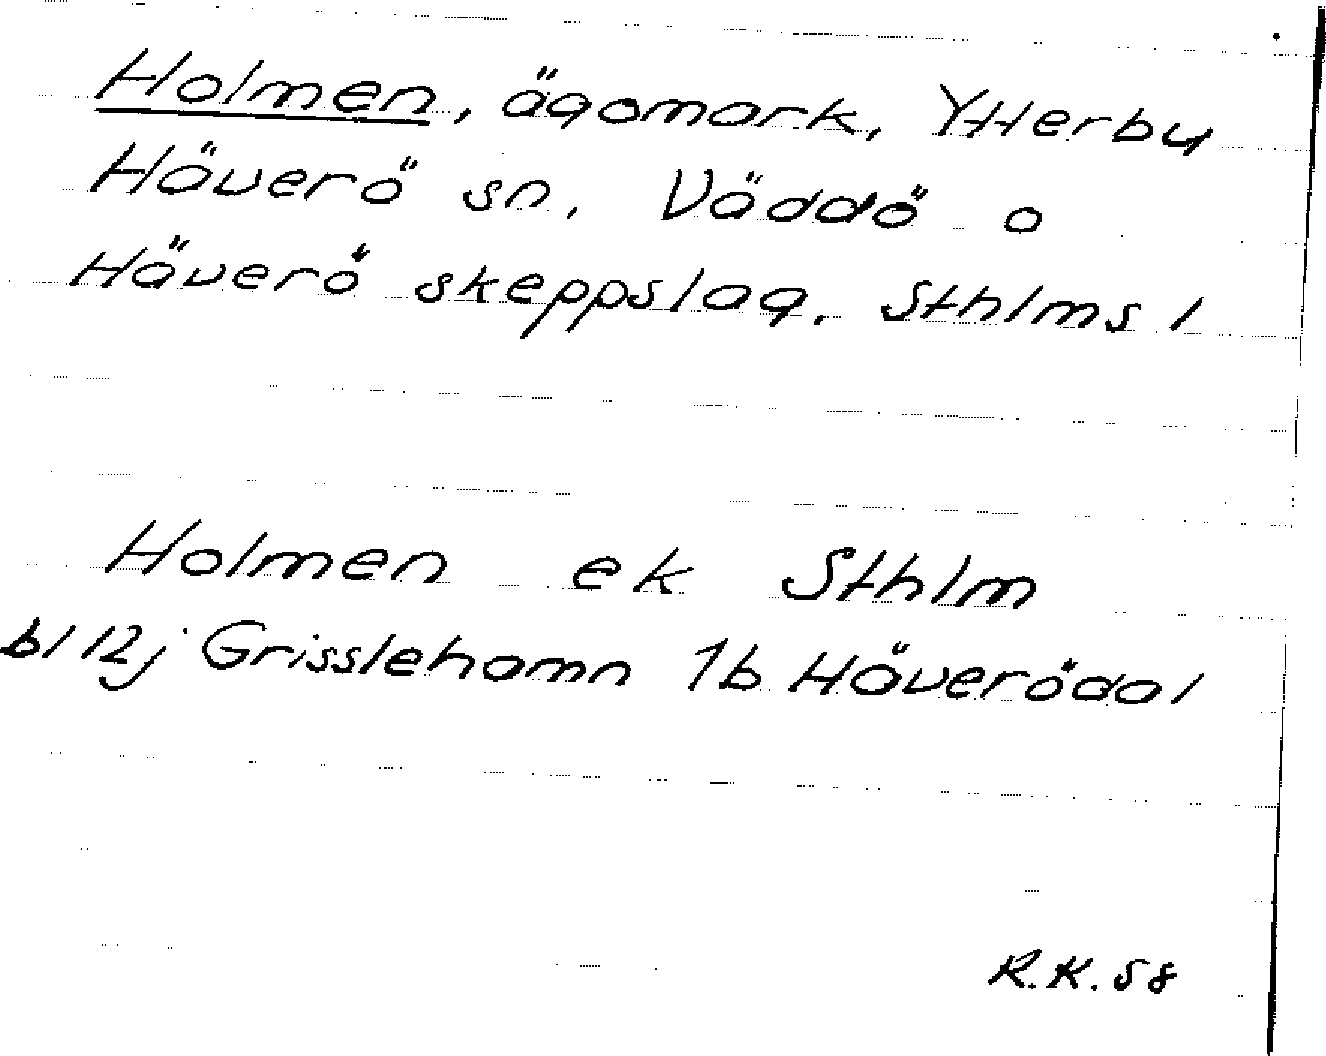 Holmen, ägomark, Ytterby
Häverö sn, Väddö o
Häverö skeppslag, Sthlms l
Holmen ek Sthlm
bl 12j Grisslehamn 1b Häverödal
R.K. 58